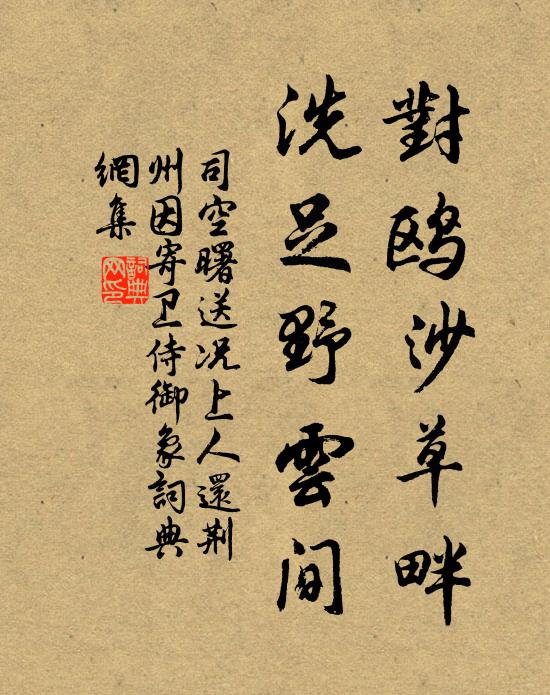 對鸥沙草畔
洗足野雲間
司空曙送况上人還荆
州因寄卫侍御象詞典
網集
詞典
网印